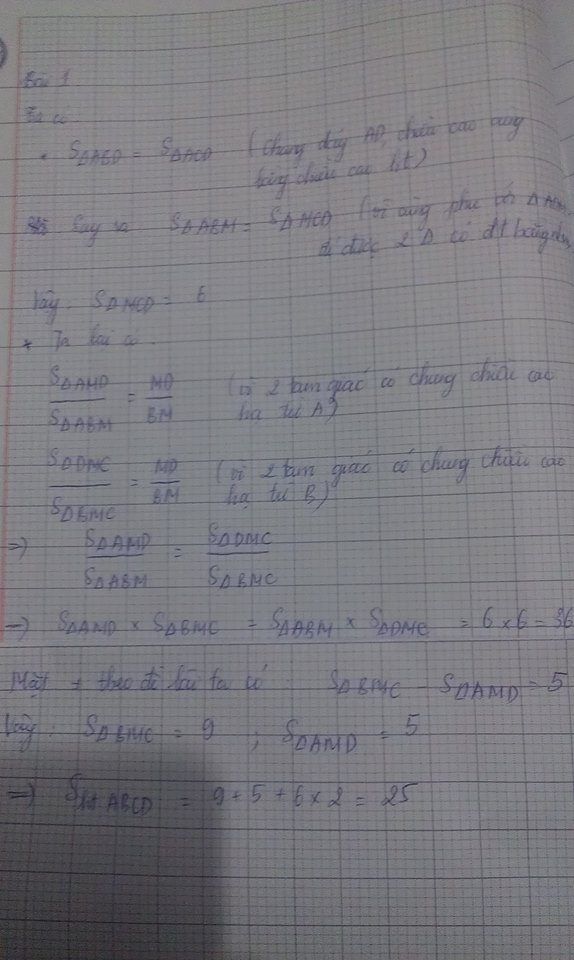 Bài 1
Ta có
* SΔABD = SΔACD (Chung đáy AD, chiều cao cùng
bằng chiều cao ht)
Suy ra SΔABM = SΔMCD (vì cùng phụ với ΔAMD
để được 2 Δ có dt bằng nhau
Vậy: SΔMCD = 6
* Ta lại có.
SΔAMD / SΔABM = MD / BM (vì 2 tam giác có chung chiều cao
hạ từ A)
SΔDMC / SΔBMC = MD / BM (vì 2 tam giác có chung chiều cao
hạ từ B)
=> SΔAMD / SΔABM = SΔDMC / SΔBMC
=> SΔAMD x SΔBMC = SΔABM x SΔDMC = 6 x 6 = 36
Mặt ≠ theo đề bài ta có SΔBMC - SΔAMD = 5
Vậy: SΔBMC = 9 ; SΔAMD = 5
=> ABCD = 9 + 5 + 6 x 2 = 25